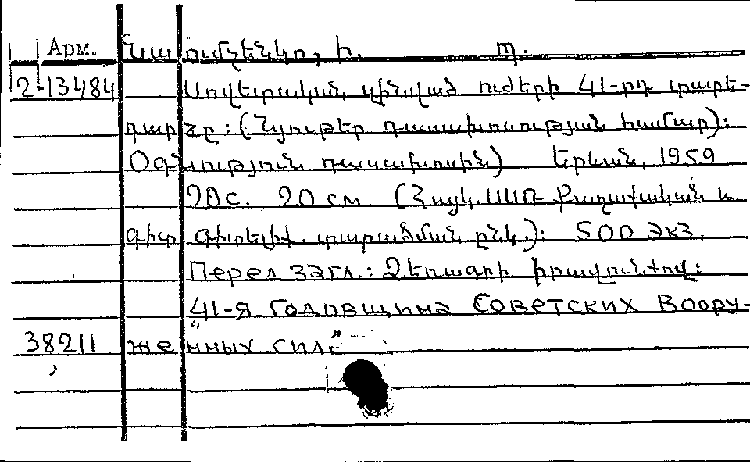 Арм. Նաումենկո, Ի. Պ.
2-13484 Սովետական զինված ուժերի 41-րդ տարե-
դարձը: (Նյութեր դասախոսության համար):
Օգնություն դասախոսին) Երևան, 1959
20с. 20 см (Հայկ. ՍՍՌ Քաղաքական և
գիտ. գիտելիք. տարածման ընկ.): 500 экз.
Перед загл.: Ձեռագրի իրավունքով:
41-я годовщина Советских Воору-
38211 женных сил"